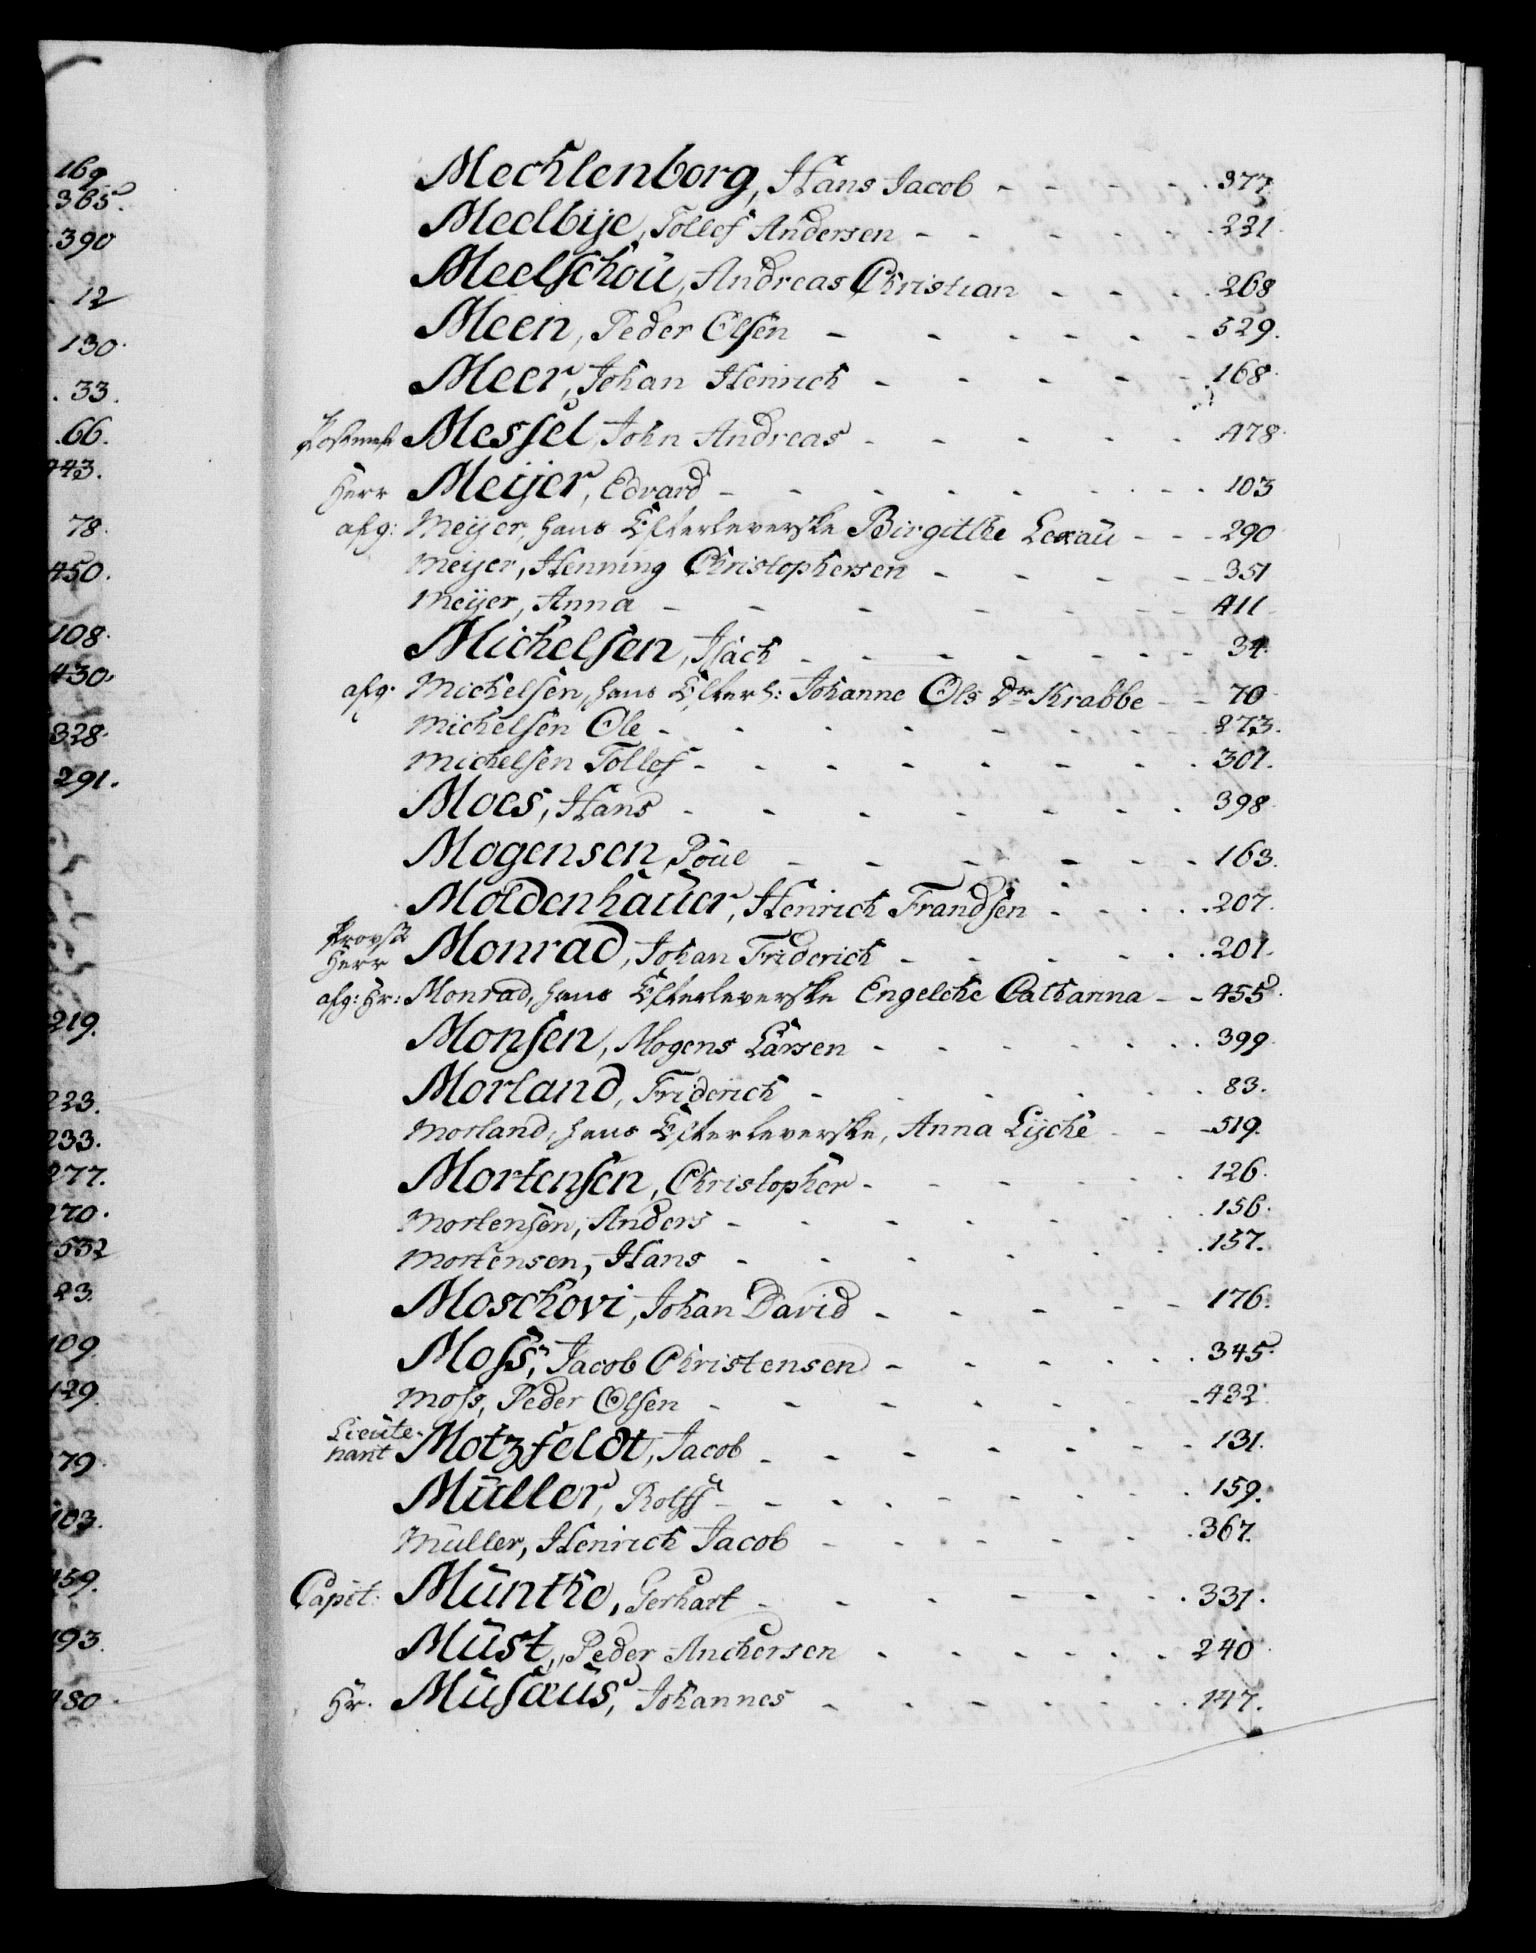 169
365.
390
12
130.
33.
66.
443.
78.
450.
108.
430.
328.
291.
219.
223.
233.
277.
270.
532
23.
109.
129.
79
103.
159.
193.
180
Mechlenborg, Hans Jacob - - - - 377.
Medbÿe, Tollef Andersen - - - - - 221.
Meelschou, Andreas Christian - - - 268
Meen, Peder Olsen - - - - - 529.
Meer, Johan Henrich - - - - - 168.
Postmest Messel, John Andreas - - - - - 478.
Herr Meijer, Edvard - - - - - - - 103
afg: Meijer, hans Efterleverske Birgitthe Lexau - - - 290
Meijer, Henning Christophersen - - - - 351
Meijer, Anna - - - - - - - 411
Michelsen, Isach - - - - - - - 34.
afg. Michelsen, hans Efterl: Johanne Ols Dr Krabbe - - 70
Michelsen Ole - - - - - - - 273.
Michelsen Tollef - - - - - - - 301.
Moes, Hans - - - - - - - 398
Mogensen, Poüe - - - - - - 163.
Moldenhauer, Henrich Frandsen - - - - 207.
Provst
Herr Monrad, Johan Friderich - - - - - 201.
afg: Hr: Monrad, hans Efterleverske Engelche Catharina - - 455.
Monsen, Mogens Larsen - - - - - - 399.
Morland, Friderich - - - - - 83.
Morland, hans Efterleverske, Anna Lÿche - - - 519.
Mortensen, Christopher - - - - - - 126.
Mortensen, Anders - - - - - - 156.
Mortensen, Hans - - - - - - 157.
Moschovi, Johan David - - - - - 176.
Moss, Jacob Christensen - - - - - - 345.
Moss, Peder Olsen - - - - - - 432.
Lieute-
nant Motzfeldt, Jacob - - - - - - 131.
Müller, Rolff - - - - - - - 159.
Müller, Henrich Jacob - - - - - - 367.
Capit: Münthe, Gerhart - - - - - - 331.
Müst, Peder Anchersen - - - - - - 240
Hr. Müsæüs, Johannes - - - - - - 147.